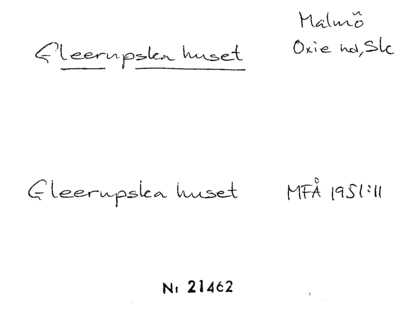 Malmö
Gleerupska huset Oxie hd, Sk
Gleerupska huset MFÅ 1951:11
Nr 21462